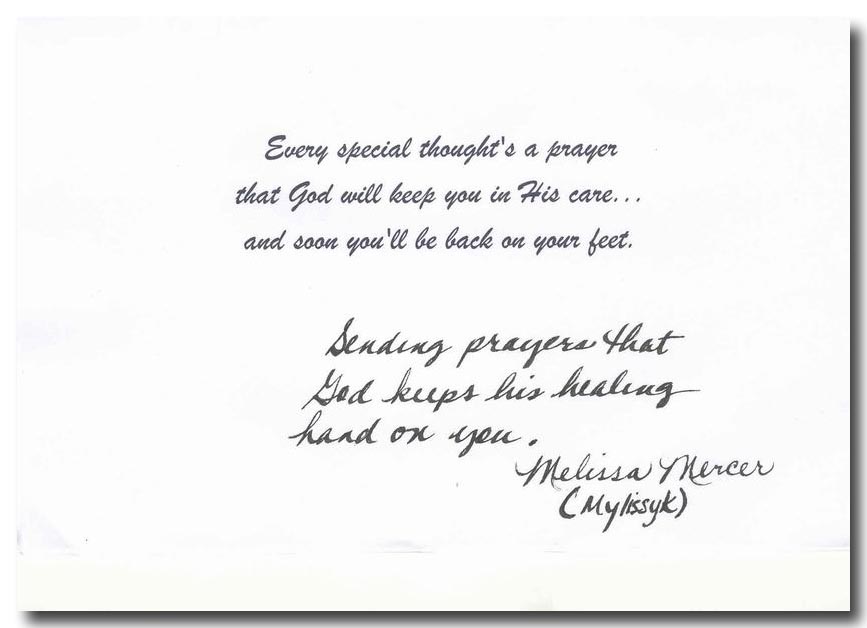 Every special thought's a prayer
that God will keep you in His care...
and soon you'll be back on your feet.
Sending prayers that
God keeps his healing
hand on you.
Melissa Mercer
(Mylissyk)